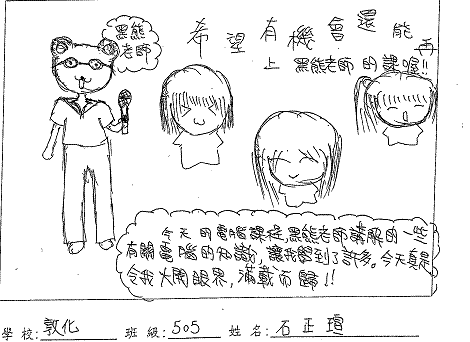 黑熊
老師
希望有機會還能再
上 黑熊老師的課喔!!
今天的電腦課程,黑熊老師講解的一些
有關電腦的知識,讓我學到了許多。今天真是
令我大開眼界,滿載而歸!!
學校:敦化 班級:505 姓名:石正瑄